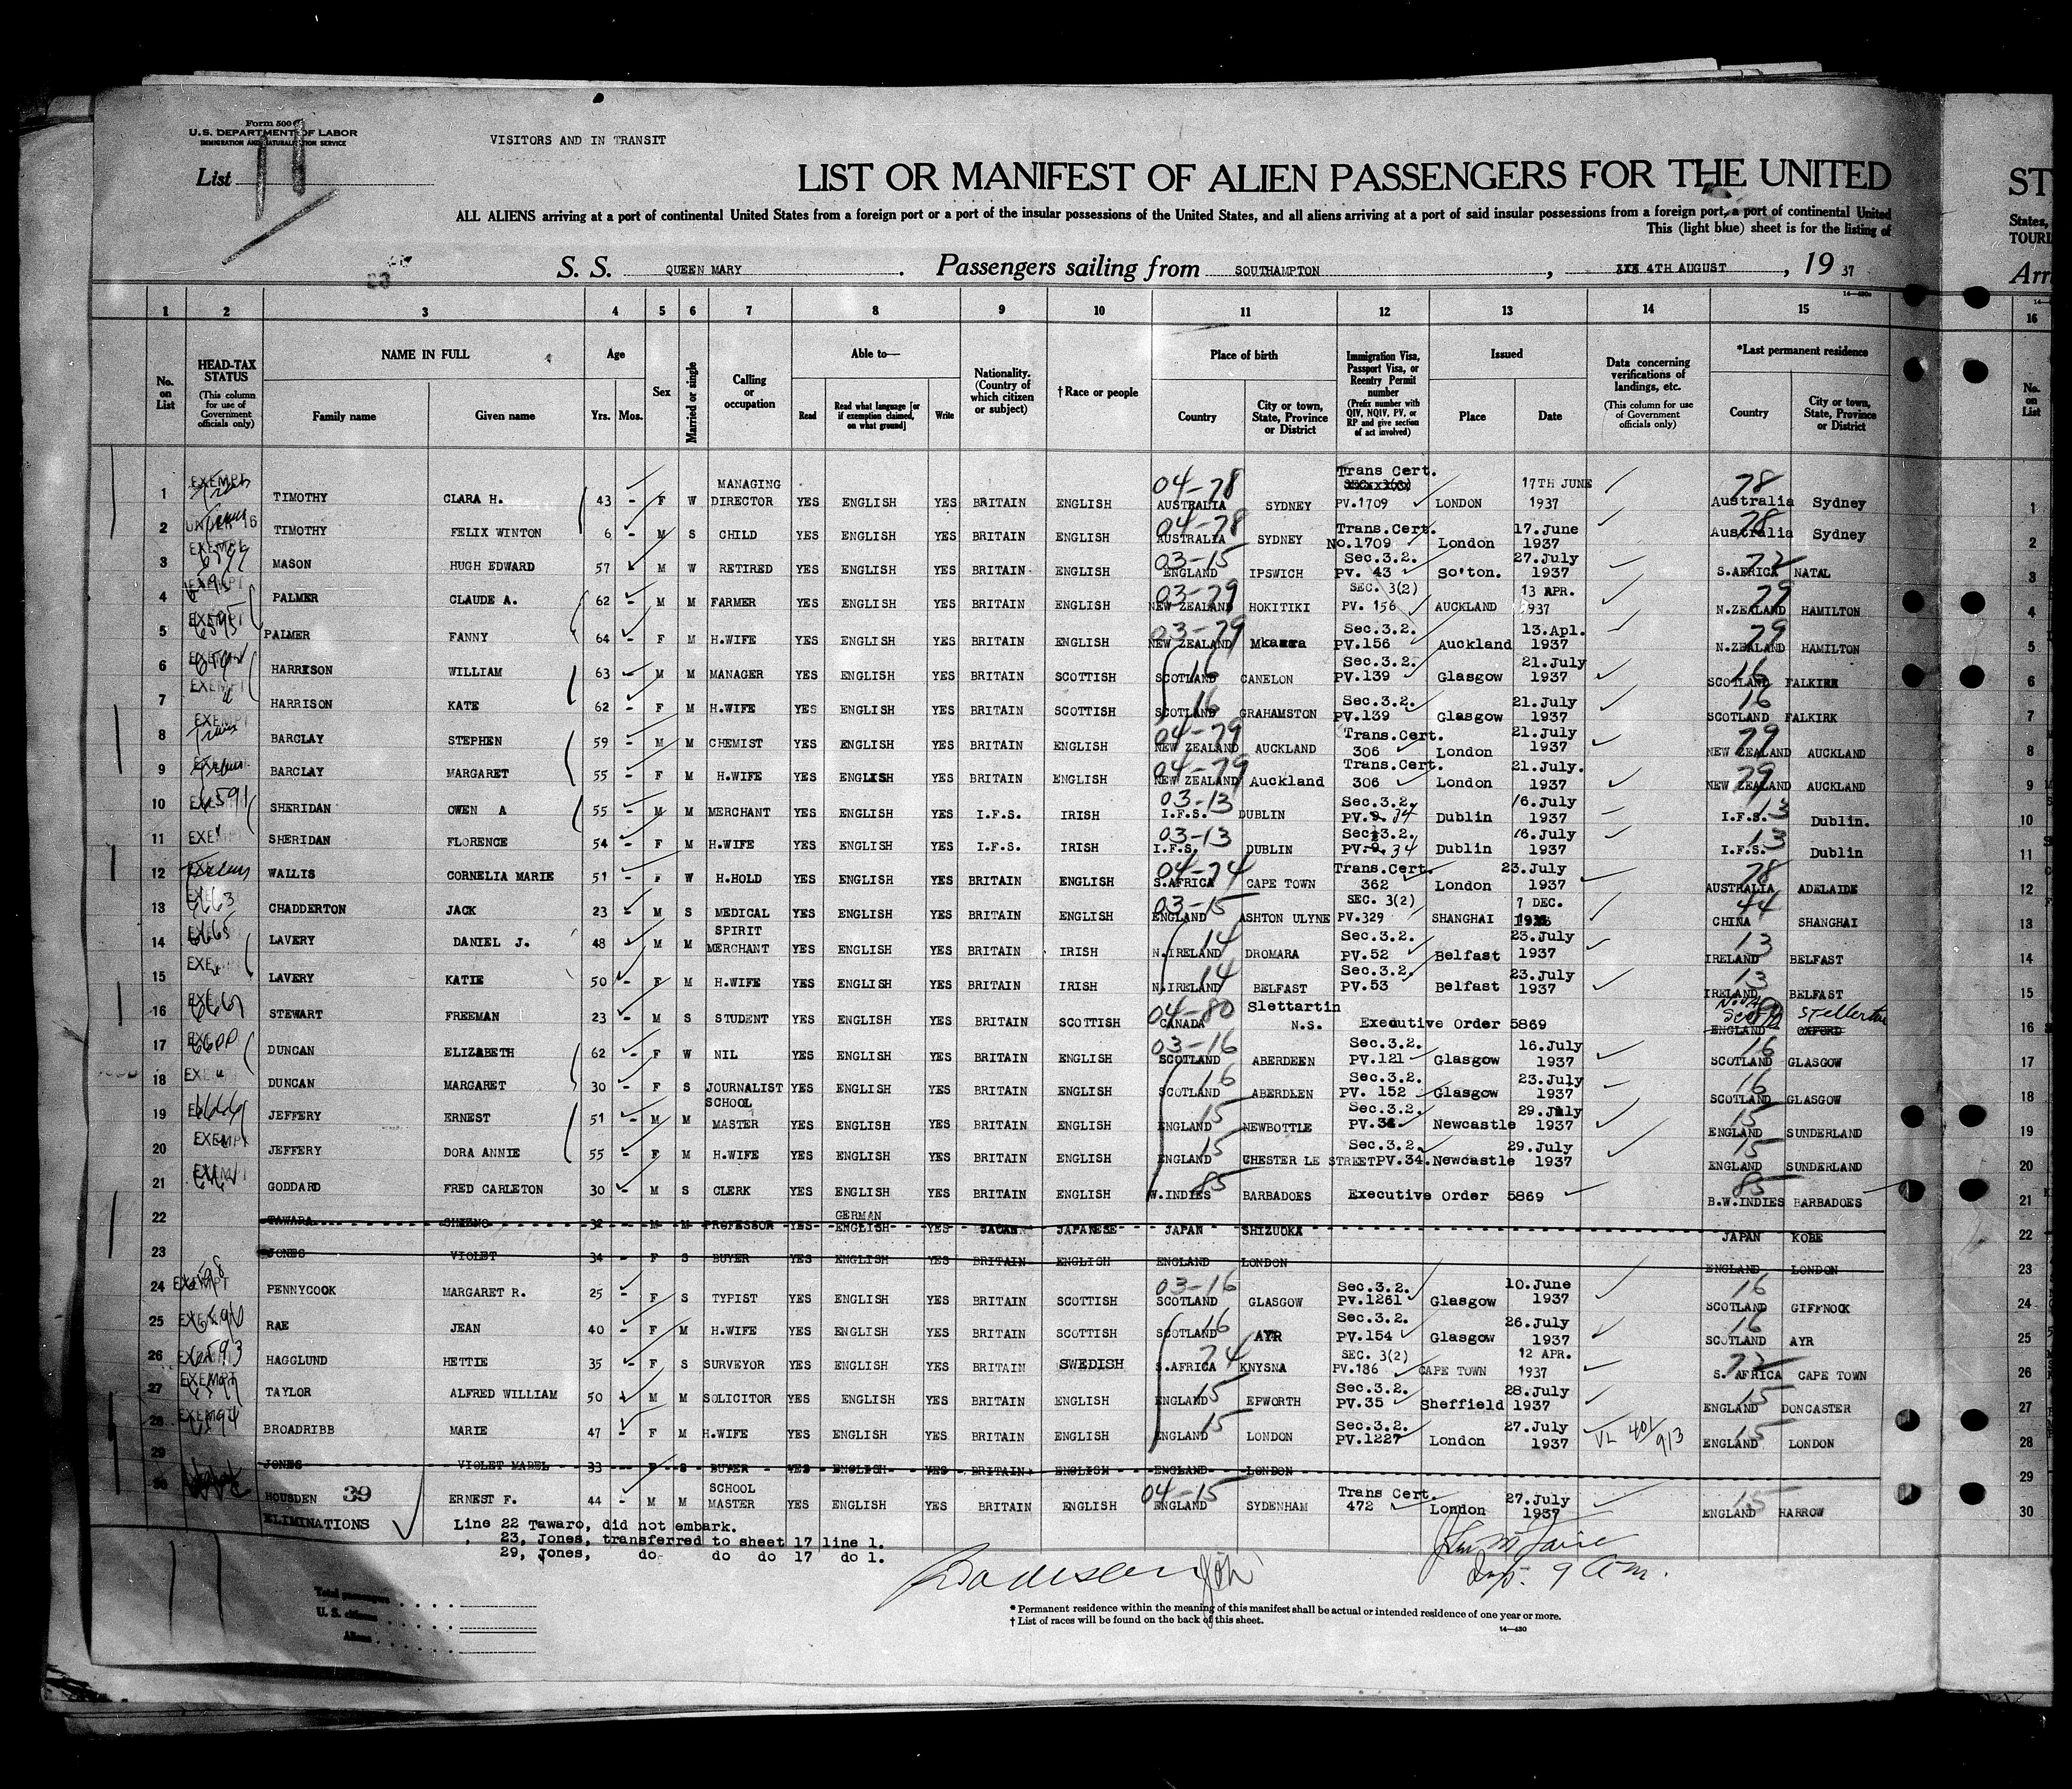 Form 500
U.S. DEPARTMENT OF LABOR
IMMIGRATION AND NATURALIZATION SERVICE
VISITORS AND IN TRANSIT
List 11
LIST OR MANIFEST OF ALIEN PASSENGERS FOR THE UNITED
ST
ALL ALIENS arriving at a port of continental United States from a foreign port or a port of the insular possessions of the United States, and all aliens arriving at a port of said insular possessions from a foreign port, a port of continental United
States,
This (light blue) sheet is for the listing of
TOURI
S. S. QUEEN MARY. Passengers sailing from SOUTHAMPTON, XXX 4TH AUGUST, 1937
Arr
1 2 3 4 5 6 7 8 9 10 11 12 13 14 15 16
No. on List
HEAD-TAX STATUS (This column for use of Government officials only)
NAME IN FULL Family name Given name
Age Yrs. Mos.
Sex
Married or single
Calling or occupation
Able to— Read Read what language [or if exemption claimed, on what ground] Write
Nationality. (Country of which citizen or subject)
† Race or people
Place of birth Country City or town, State, Province or District
Immigration Visa, Passport Visa, or Reentry Permit number (Prefix number with QIV, NQIV, PV, or RP and give section of act involved)
Issued Place Date
Data concerning verifications of landings, etc. (This column for use of Government officials only)
*Last permanent residence Country City or town, State, Province or District
No. on List
1 EXEMPT TIMOTHY CLARA H. 43 - F W MANAGING DIRECTOR YES ENGLISH YES BRITAIN ENGLISH 04-78 AUSTRALIA SYDNEY Trans Cert. PV.1709 LONDON 17TH JUNE 1937 78 Australia Sydney 1
2 UNDER 16 TIMOTHY FELIX WINTON 6 - M S CHILD YES ENGLISH YES BRITAIN ENGLISH 04-78 AUSTRALIA SYDNEY Trans.Cert. No.1709 London 17.June 1937 78 Australia Sydney 2
3 EXEMPT MASON HUGH EDWARD 57 M W RETIRED YES ENGLISH YES BRITAIN ENGLISH 03-15 ENGLAND IPSWICH Sec.3.2. PV. 43 So'ton. 27.July 1937 72 S.AFRICA NATAL 3
4 EXEMPT PALMER CLAUDE A. 62 - M M FARMER YES ENGLISH YES BRITAIN ENGLISH 03-79 NEW ZEALAND HOKITIKI SEC. 3(2) PV. 156 AUCKLAND 13 APR. 1937 79 N.ZEALAND HAMILTON 4
5 EXEMPT 6595 PALMER FANNY 64 - F M H.WIFE YES ENGLISH YES BRITAIN ENGLISH 03-79 NEW ZEALAND Sec.3.2. PV.156 Auckland 13.Apl. 1937 79 N.ZEALAND HAMILTON 5
6 HARRISON WILLIAM 63 - M M MANAGER YES ENGLISH YES BRITAIN SCOTTISH 16 SCOTLAND CANELON Sec.3.2. PV.139 Glasgow 21.July 1937 16 SCOTLAND FALKIRK 6
7 EXEMPT HARRISON KATE 62 - F M H.WIFE YES ENGLISH YES BRITAIN SCOTTISH 16 SCOTLAND GRAHAMSTON Sec.3.2. PV.139 Glasgow 21.July 1937 16 SCOTLAND FALKIRK 7
8 EXEMPT Trans BARCLAY STEPHEN 59 - M M CHEMIST YES ENGLISH YES BRITAIN ENGLISH 04-79 NEW ZEALAND AUCKLAND Trans.Cert. 306 London 21.July 1937 79 NEW ZEALAND AUCKLAND 8
9 BARCLAY MARGARET 55 - F M H.WIFE YES ENGLISH YES BRITAIN ENGLISH 04-79 NEW ZEALAND Auckland Trans.Cert. 306 London 21.July. 1937 79 NEW ZEALAND AUCKLAND 9
10 6591 SHERIDAN OWEN A 55 - M M MERCHANT YES ENGLISH YES I.F.S. IRISH 03-13 I.F.S. DUBLIN Sec.3.2. PV. 34 Dublin 16.July 1937 13 I.F.S. Dublin. 10
11 SHERIDAN FLORENCE 54 - F M H.WIFE YES ENGLISH YES I.F.S. IRISH 03-13 I.F.S. DUBLIN Sec.3.2. PV. 34 Dublin 16.July 1937 13 I.F.S. Dublin 11
12 WALLIS CORNELIA MARIE 51 - F W H.HOLD YES ENGLISH YES BRITAIN ENGLISH 04-74 S.AFRICA CAPE TOWN Trans.Cert. 362 London 23.July 1937 78 AUSTRALIA ADELAIDE 12
13 6663 CHADDERTON JACK 23 - M S MEDICAL YES ENGLISH YES BRITAIN ENGLISH 03-15 ENGLAND ASHTON ULYNE SEC. 3(2) PV.329 SHANGHAI 7 DEC. 1936 44 CHINA SHANGHAI 13
14 6665 LAVERY DANIEL J. 48 - M M SPIRIT MERCHANT YES ENGLISH YES BRITAIN IRISH 14 N.IRELAND DROMARA Sec.3.2. PV.52 Belfast 23.July 1937 13 IRELAND BELFAST 14
15 LAVERY KATIE 50 - F M H.WIFE YES ENGLISH YES BRITAIN IRISH 14 N.IRELAND BELFAST Sec.3.2. PV.53 Belfast 23.July 1937 13 IRELAND BELFAST 15
16 STEWART FREEMAN 23 - M S STUDENT YES ENGLISH YES BRITAIN SCOTTISH 04-80 CANADA Slettartin N.S. Executive Order 5869 ENGLAND OXFORD 16
17 DUNCAN ELIZABETH 62 - F W NIL YES ENGLISH YES BRITAIN ENGLISH 03-16 SCOTLAND ABERDEEN Sec.3.2. PV.121 Glasgow 16.July 1937 16 SCOTLAND GLASGOW 17
18 DUNCAN MARGARET 30 - F S JOURNALIST YES ENGLISH YES BRITAIN ENGLISH 16 SCOTLAND ABERDEEN Sec.3.2. PV. 152 Glasgow 23.July 1937 16 SCOTLAND GLASGOW 18
19 JEFFERY ERNEST 51 - M M SCHOOL MASTER YES ENGLISH YES BRITAIN ENGLISH 15 ENGLAND NEWBOTTLE Sec.3.2. Newcastle 29.July 1937 15 ENGLAND SUNDERLAND 19
20 EXEMPT JEFFERY DORA ANNIE 55 - F M H.WIFE YES ENGLISH YES BRITAIN ENGLISH 15 ENGLAND CHESTER LE STREET Sec.3.2. PV.34. Newcastle 29.July 1937 15 ENGLAND SUNDERLAND 20
21 GODDARD FRED CARLETON 30 - M S CLERK YES ENGLISH YES BRITAIN ENGLISH 85 W.INDIES BARBADOES Executive Order 5869 85 B.W.INDIES BARBADOES 21
22 TAWARA 32 - M M PROFESSOR YES GERMAN ENGLISH YES JAPAN JAPANESE JAPAN SHIZUOKA JAPAN KOBE 22
23 JONES VIOLET 34 - F S BUYER YES ENGLISH YES BRITAIN ENGLISH ENGLAND LONDON ENGLAND LONDON 23
24 EXEMPT PENNYCOOK MARGARET R. 25 - F S TYPIST YES ENGLISH YES BRITAIN SCOTTISH 03-16 SCOTLAND GLASGOW Sec.3.2. PV.1261 Glasgow 10.June 1937 16 SCOTLAND GIFFNOCK 24
25 RAE JEAN 40 - F M H.WIFE YES ENGLISH YES BRITAIN SCOTTISH 16 SCOTLAND AYR Sec.3.2. PV.154 Glasgow 26.July 1937 16 SCOTLAND AYR 25
26 6593 HAGGLUND HETTIE 35 - F S SURVEYOR YES ENGLISH YES BRITAIN SWEDISH 74 S.AFRICA KNYSNA SEC. 3(2) PV.186 CAPE TOWN 12 APR. 1937 72 S. AFRICA CAPE TOWN 26
27 EXEMPT TAYLOR ALFRED WILLIAM 50 M M SOLICITOR YES ENGLISH YES BRITAIN ENGLISH 15 ENGLAND EPWORTH Sec.3.2. PV.35 Sheffield 28.July 1937 15 ENGLAND DONCASTER 27
28 EXEMPT BROADRIBB MARIE 47 - F M H.WIFE YES ENGLISH YES BRITAIN ENGLISH 15 ENGLAND LONDON Sec.3.2. PV.1227 London 27.July 1937 VL 401/913 15 ENGLAND LONDON 28
29 JONES VIOLET MABEL 33 - F S BUYER YES ENGLISH YES BRITAIN ENGLISH ENGLAND LONDON 29
30 HOUSDEN 39 ERNEST F. 44 - M M SCHOOL MASTER YES ENGLISH YES BRITAIN ENGLISH 04-15 ENGLAND SYDENHAM Trans Cert. 472 London 27.July 1937 15 ENGLAND HARROW 30
ELIMINATIONS Line 22 Tawaro, did not embark.
23, Jones, transferred to sheet 17 line 1.
29, Jones, do do do 17 do 1.
Total passengers
U. S. citizens
Aliens
* Permanent residence within the meaning of this manifest shall be actual or intended residence of one year or more.
† List of races will be found on the back of this sheet.
14—430